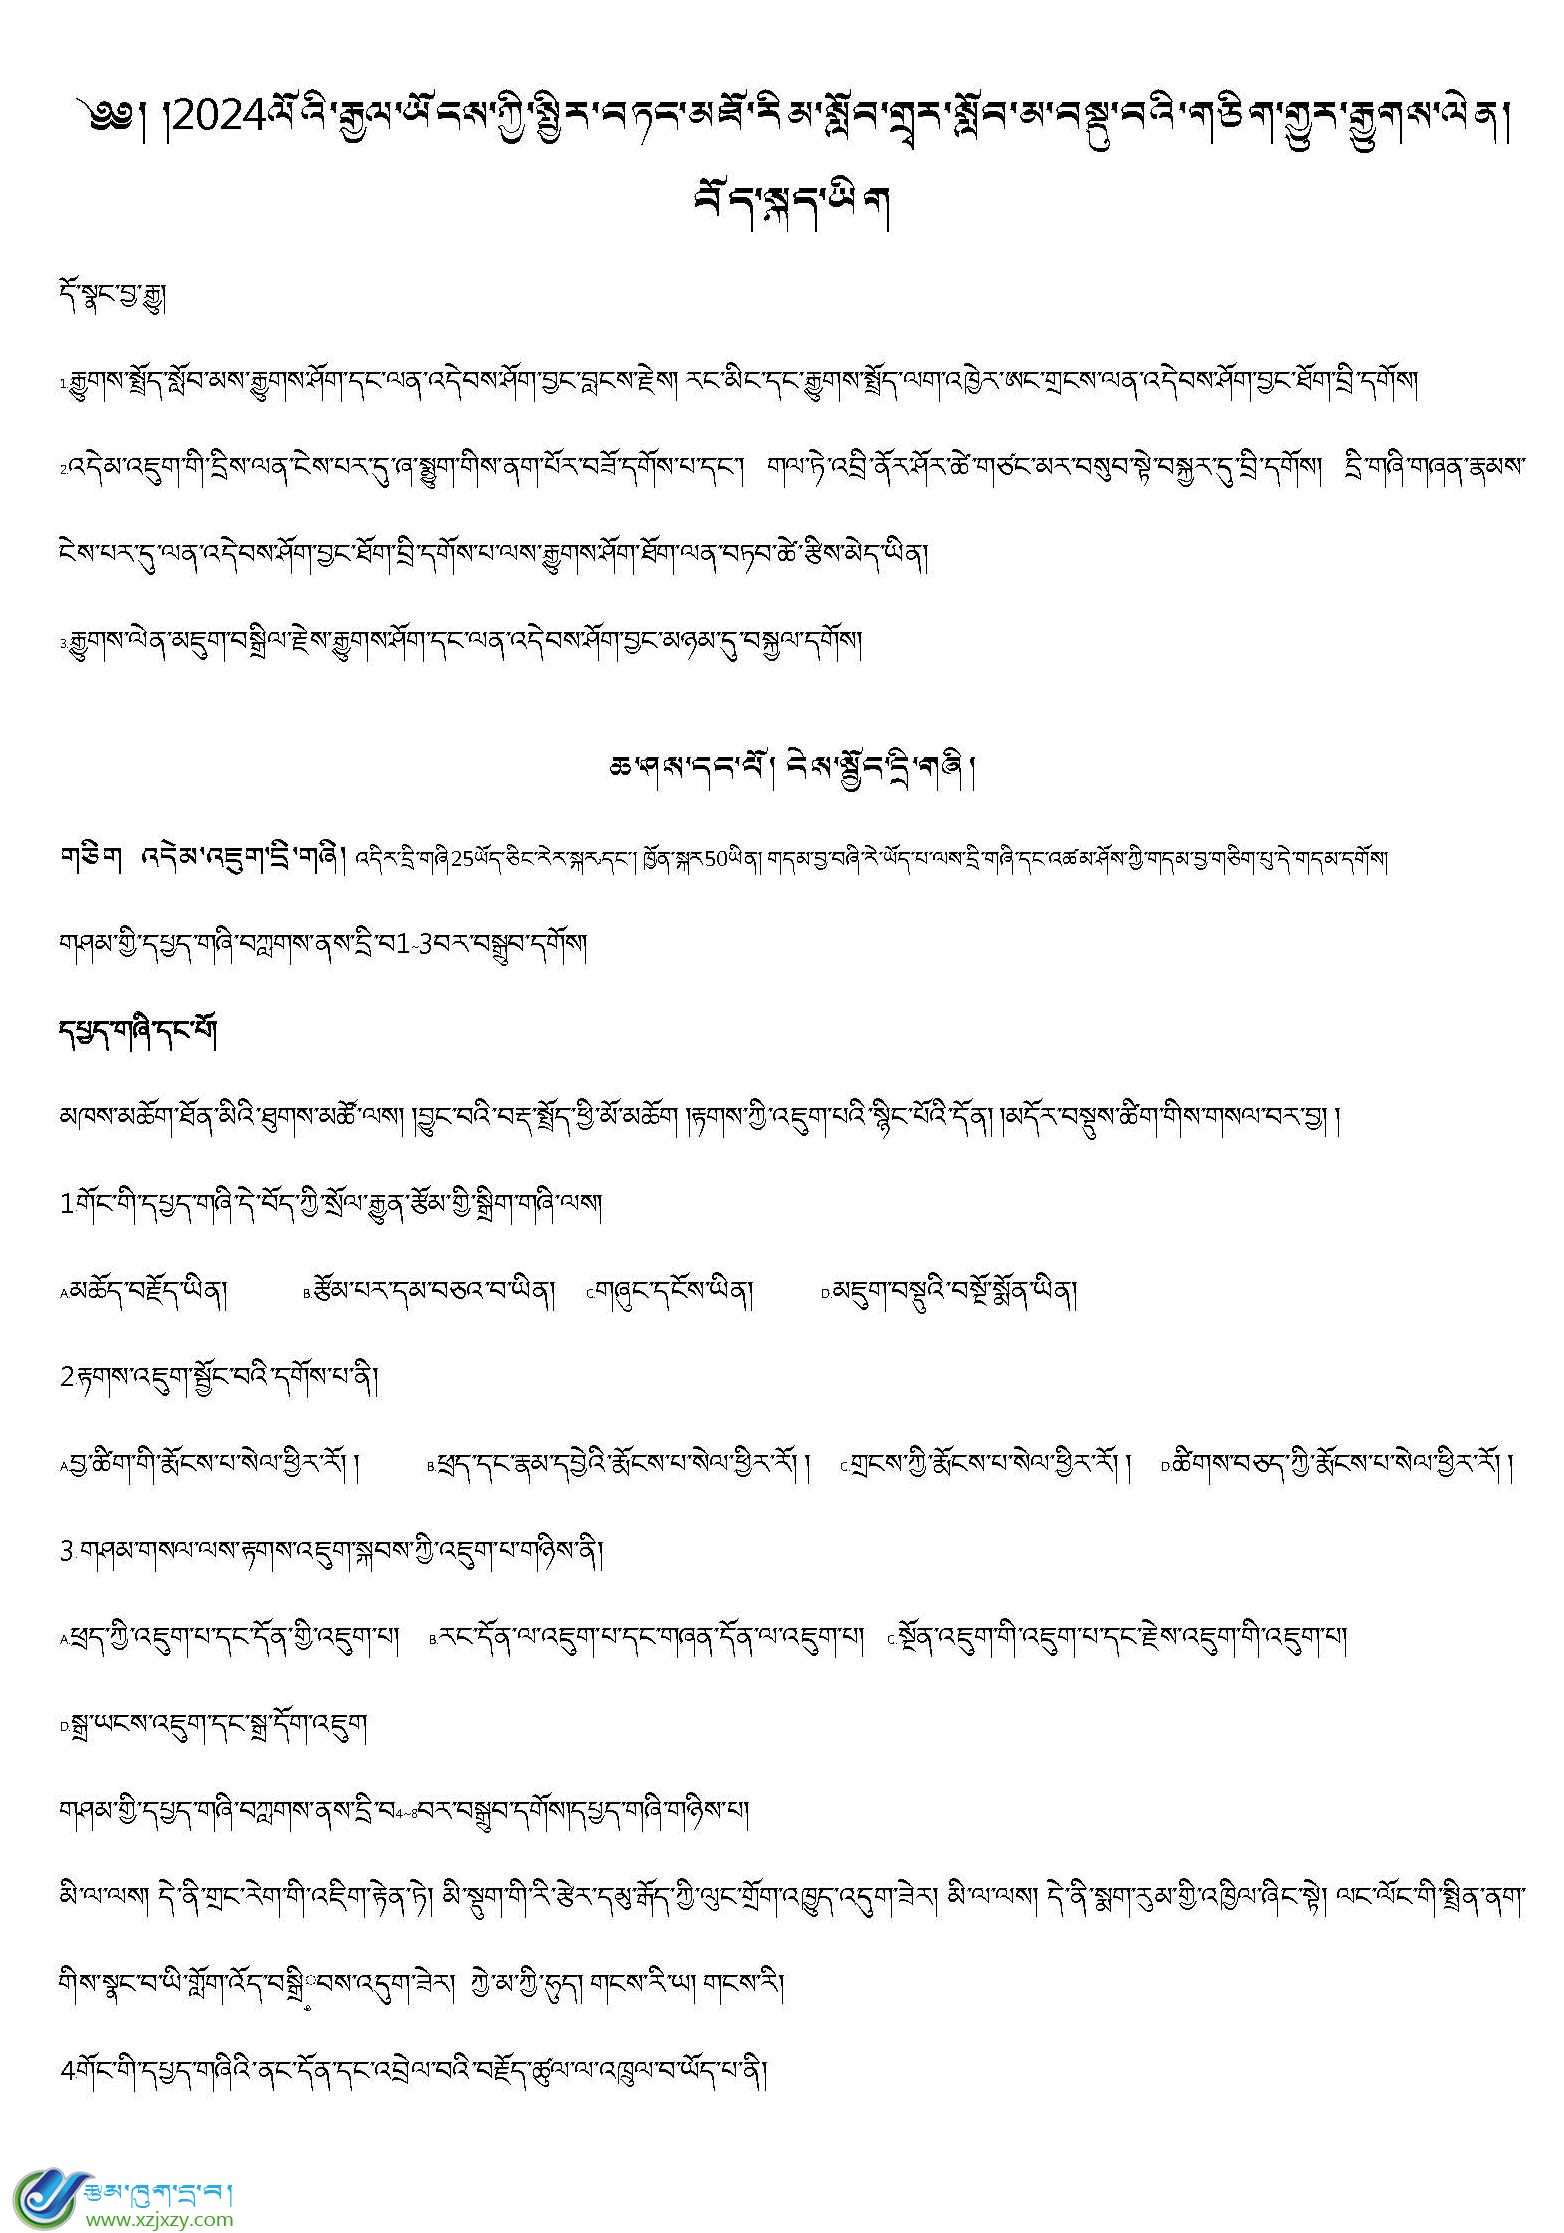 ༄༅། །2024ལོའི་རྒྱལ་ཡོངས་ཀྱི་སྤྱིར་བཏང་མཐོ་རིམ་སློབ་གྲྭར་སློབ་མ་བསྡུ་བའི་གཅིག་གྱུར་རྒྱུགས་ལེན།
བོད་སྐད་ཡིག
དོ་སྣང་བྱ་རྒྱུ།
1.རྒྱུགས་སྤྲོད་སློབ་མས་རྒྱུགས་ཤོག་དང་ལན་འདེབས་ཤོག་བྱང་བླངས་རྗེས། རང་མིང་དང་རྒྱུགས་སྤྲོད་ལག་འཁྱེར་ཨང་གྲངས་ལན་འདེབས་ཤོག་བྱང་ཐོག་བྲི་དགོས།
2.འདེམ་འཇུག་གི་དྲིས་ལན་ངེས་པར་དུ་ཞ་སྨྱུག་གིས་ནག་པོར་བཟོ་དགོས་པ་དང་། གལ་ཏེ་འབྲི་ནོར་ཤོར་ཚེ་གཙང་མར་བསུབ་སྟེ་བསྐྱར་དུ་བྲི་དགོས། དྲི་གཞི་གཞན་རྣམས་
ངེས་པར་དུ་ལན་འདེབས་ཤོག་བྱང་ཐོག་བྲི་དགོས་པ་ལས་རྒྱུགས་ཤོག་ཐོག་ལན་བཏབ་ཚེ་རྩིས་མེད་ཡིན།
3.རྒྱུགས་ལེན་མཇུག་བསྒྲིལ་རྗེས་རྒྱུགས་ཤོག་དང་ལན་འདེབས་ཤོག་བྱང་མཉམ་དུ་བསྐྱལ་དགོས།
ཆ་ཤས་དང་པོ། ངེས་སྦྱོང་དྲི་གཞི།
གཅིག འདེམ་འཇུག་དྲི་གཞི། འདིར་དྲི་གཞི25ཡོད་ཅིང་རེར་སྐར་དང་། ཁྱོན་སྐར50ཡིན། གདམ་བྱ་བཞི་རེ་ཡོད་པ་ལས་དྲི་གཞི་དང་འཚམ་ཤོས་ཀྱི་གདམ་བྱ་གཅིག་པུ་དེ་གདམ་དགོས།
གཤམ་གྱི་དཔྱད་གཞི་བཀླགས་ནས་དྲི་བ1~3བར་བསྒྲུབ་དགོས།
དཔྱད་གཞི་དང་པོ།
མཁས་མཆོག་ཐོན་མིའི་ཐུགས་མཚོ་ལས། །བྱུང་བའི་བརྡ་སྤྲོད་ཕྱི་མོ་མཆོག །རྟགས་ཀྱི་འཇུག་པའི་སྙིང་པོའི་དོན། །མདོར་བསྡུས་ཚིག་གིས་གསལ་བར་བྱ། །
1.གོང་གི་དཔྱད་གཞི་དེ་བོད་ཀྱི་སྲོལ་རྒྱུན་རྩོམ་གྱི་སྒྲིག་གཞི་ལས།
A.མཆོད་བརྗོད་ཡིན། B.རྩོམ་པར་དམ་བཅའ་བ་ཡིན། C.གཞུང་དངོས་ཡིན། D.མཇུག་བསྡུའི་བསྔོ་སྨོན་ཡིན།
2.རྟགས་འཇུག་སྦྱོང་བའི་དགོས་པ་ནི།
A.བྱ་ཚིག་གི་རྨོངས་པ་སེལ་ཕྱིར་རོ། ། B.ཕྲད་དང་རྣམ་དབྱེའི་རྨོངས་པ་སེལ་ཕྱིར་རོ། ། C.གྲངས་ཀྱི་རྨོངས་པ་སེལ་ཕྱིར་རོ། ། D.ཚིགས་བཅད་ཀྱི་རྨོངས་པ་སེལ་ཕྱིར་རོ། །
3. གཤམ་གསལ་ལས་རྟགས་འཇུག་སྐབས་ཀྱི་འཇུག་པ་གཉིས་ནི།
A.ཕྲད་ཀྱི་འཇུག་པ་དང་དོན་གྱི་འཇུག་པ། B.རང་དོན་ལ་འཇུག་པ་དང་གཞན་དོན་ལ་འཇུག་པ། C.སྔོན་འཇུག་གི་འཇུག་པ་དང་རྗེས་འཇུག་གི་འཇུག་པ།
D.སྒྲ་ཡངས་འཇུག་དང་སྒྲ་དོག་འཇུག
གཤམ་གྱི་དཔྱད་གཞི་བཀླགས་ནས་དྲི་བ4~8བར་བསྒྲུབ་དགོས།དཔྱད་གཞི་གཉིས་པ།
མི་ལ་ལས། དེ་ནི་གྲང་རེག་གི་འཇིག་རྟེན་ཏེ། མི་སྡུག་གི་རི་རྩེར་དམུ་རྒོད་ཀྱི་ལུང་གྲོག་འཁྱུད་འདུག་ཟེར། མི་ལ་ལས། དེ་ནི་སྨག་རུམ་གྱི་འཁྱིལ་ཞིང་སྟེ། ལང་ལོང་གི་སྤྲིན་ནག་
གིས་སྣང་བ་ཡི་གློག་འོད་བསྒྲིབས་འདུག་ཟེར། ཀྱེ་མ་ཀྱི་ཧུད། གངས་རི་ཡ། གངས་རི།
4.གོང་གི་དཔྱད་གཞིའི་ནང་དོན་དང་འབྲེལ་བའི་བརྗོད་ཚུལ་ལ་འཁྲུལ་བ་ཡོད་པ་ནི།
www.xzjxzy.com